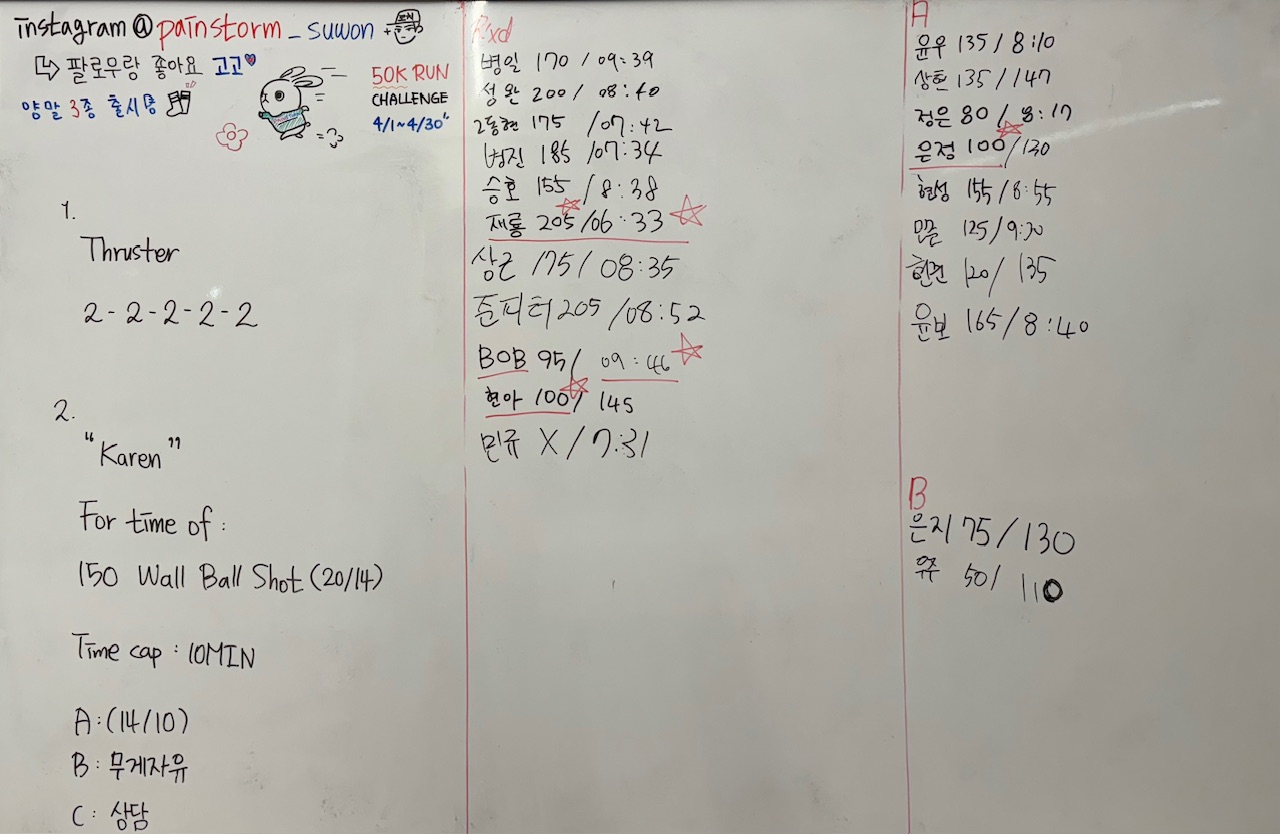 instagram@painstorm_suwon
↳ 팔로우랑 좋아요 고고♥
양말 3종 출시중
50K RUN
CHALLENGE
4/1~4/30"
1.
Thruster
2-2-2-2-2
2.
"Karen"
For time of :
150 Wall Ball Shot (20/14)
Time cap : 10MIN
A : (14/10)
B : 무게자유
C : 상담
R'xd
병일 170 / 09:39
성완 200 / 08:40
2동현 175 / 07:42
병진 185 / 07:34
승호 155 / 8:38
재룡 205 / 06:33
상근 175 / 08:35
준피터 205 / 08:52
BOB 95 / 09:46
현아 100 / 145
민규 X / 7:31
A
윤우 135 / 8:10
상현 135 / 147
정은 80 / 8:17
은정 100 / 130
현성 155 / 8:55
125 / 9:20
120 / 135
윤보 165 / 8:40
B
은지 75 / 130
50 / 110